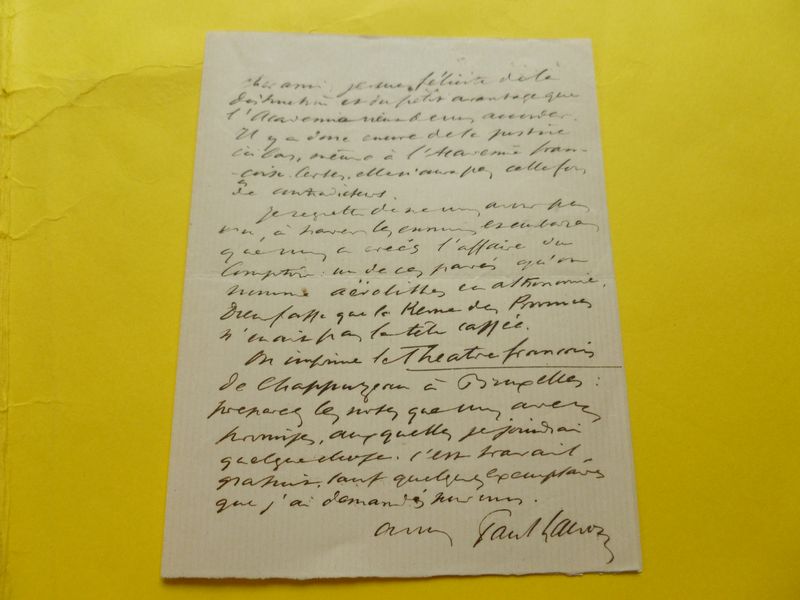 cher ami, je me félicite de la
distinction et du petit avantage que
l'Académie vient de vous accorder.
Il y a donc encore de la justice
ici bas, même à l'Académie fran-
-çaise. Certes, elle n'aura pas cette fois
de contradicteurs.
Je regrette de ne vous avoir pas
vu, à travers les ennuis
que nous a créés l'affaire du
Comptoir: un de ces pavés qu'on
nomme aërolithes en astronomie.
Dieu fasse que la Revue des Provinces
n'en ait pas la tête cassée.
On imprime le Théatre françois
de Chappuzeau à Bruxelles:
preparez les notes que vous avez
promises, auxquelles je joindrai
quelque chose. C'est travail
gratuit, sauf quelques exemplaires
que j'ai demandés pour vous.
Paul Lacroix